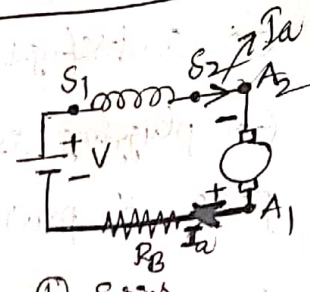 S1 S2 Ia
A2
+ V -
-
+
A1
RB Ia